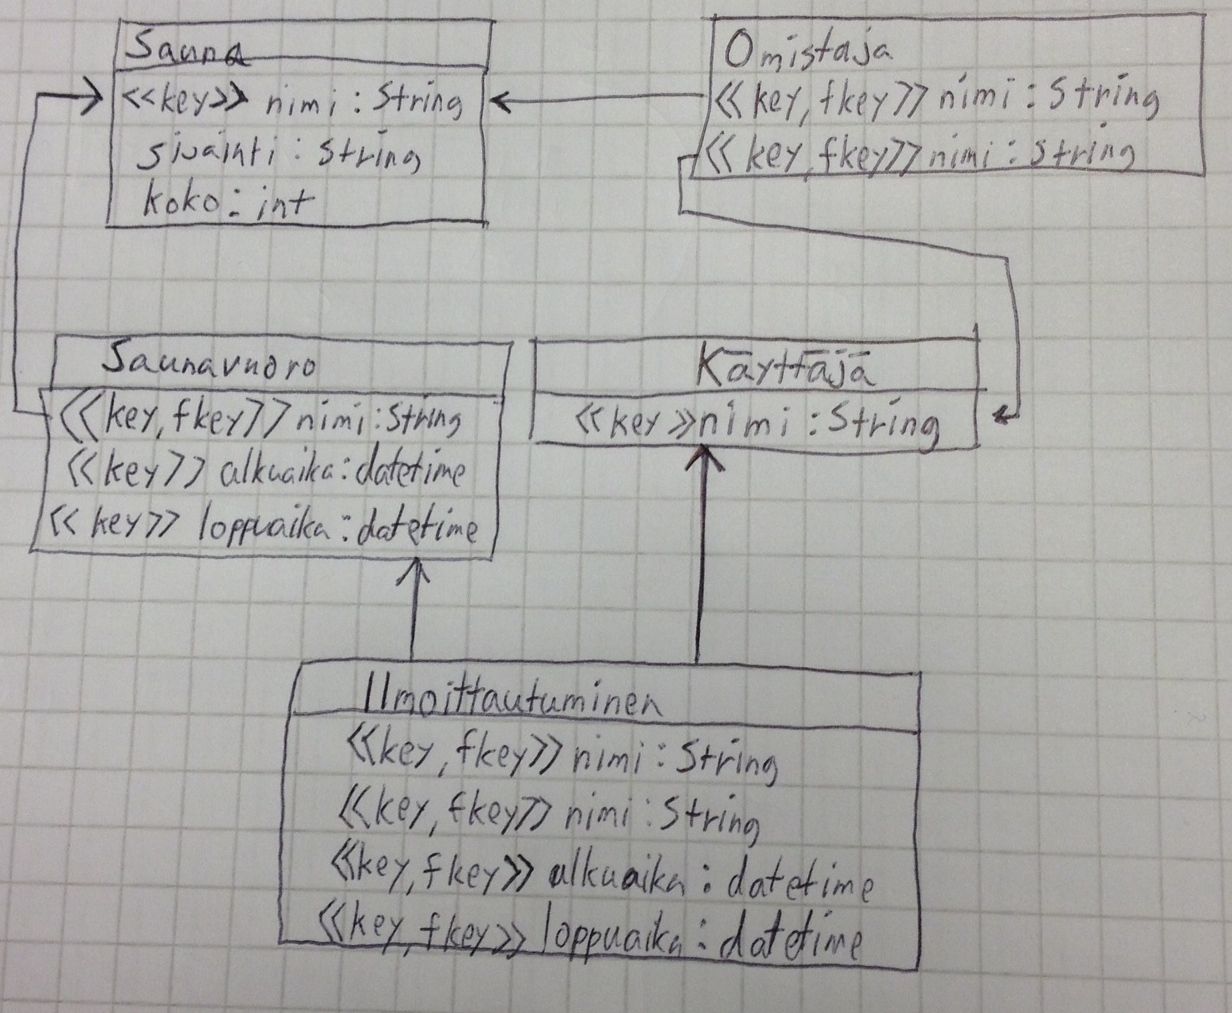 Sauna
<<key>> nimi : String
sijainti : String
koko : int
Omistaja
<<key, fkey>> nimi : String
<<key, fkey>> nimi : String
Saunavuoro
<<key, fkey>> nimi : String
<<key>> alkuaika : datetime
<<key>> loppuaika : datetime
Käyttäjä
<<key>> nimi : String
Ilmoittautuminen
<<key, fkey>> nimi : String
<<key, fkey>> nimi : String
<<key, fkey>> alkuaika : datetime
<<key, fkey>> loppuaika : datetime